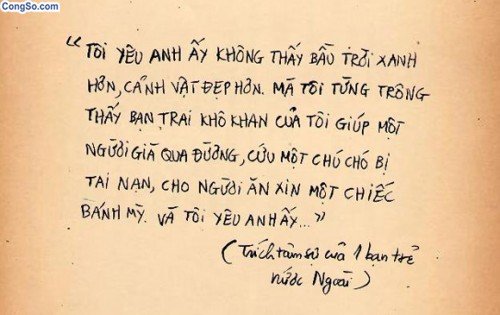 CongSo.com
"TÔI YÊU ANH ẤY KHÔNG THẤY BẦU TRỜI XANH
HƠN, CẢNH VẬT ĐẸP HƠN. MÀ TÔI TỪNG TRÔNG
THẤY BẠN TRAI KHÔ KHAN CỦA TÔI GIÚP MỘT
NGƯỜI GIÀ QUA ĐƯỜNG, CỨU MỘT CHÚ CHÓ BỊ
TAI NẠN, CHO NGƯỜI ĂN XIN MỘT CHIẾC
BÁNH MỲ. VÀ TÔI YÊU ANH ẤY..."
(Trích tâm sự của 1 bạn trẻ
nước Ngoài)